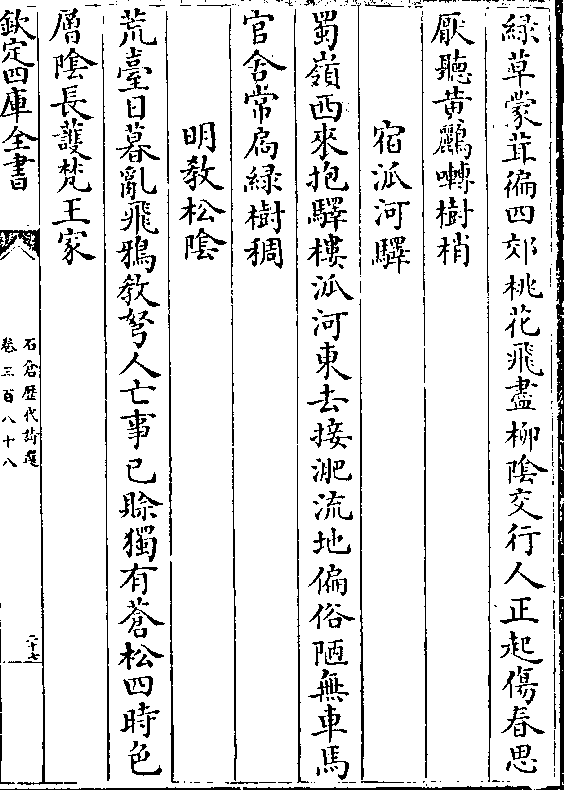 綠草蒙茸徧四郊桃花飛盡柳陰交行人正起傷春思
厭聽黄鸝囀樹梢
宿泒河驛
蜀嶺西來抱驛樓泒河東去接淝流地偏俗陋無車馬
官舍常扄綠樹稠
明教松陰
荒臺日暮亂飛鴉教弩人亡事已賒獨有蒼松四時色
層陰長護梵王家
欽定四庫全書
石倉歴代詩選
卷三百八十八
二十七